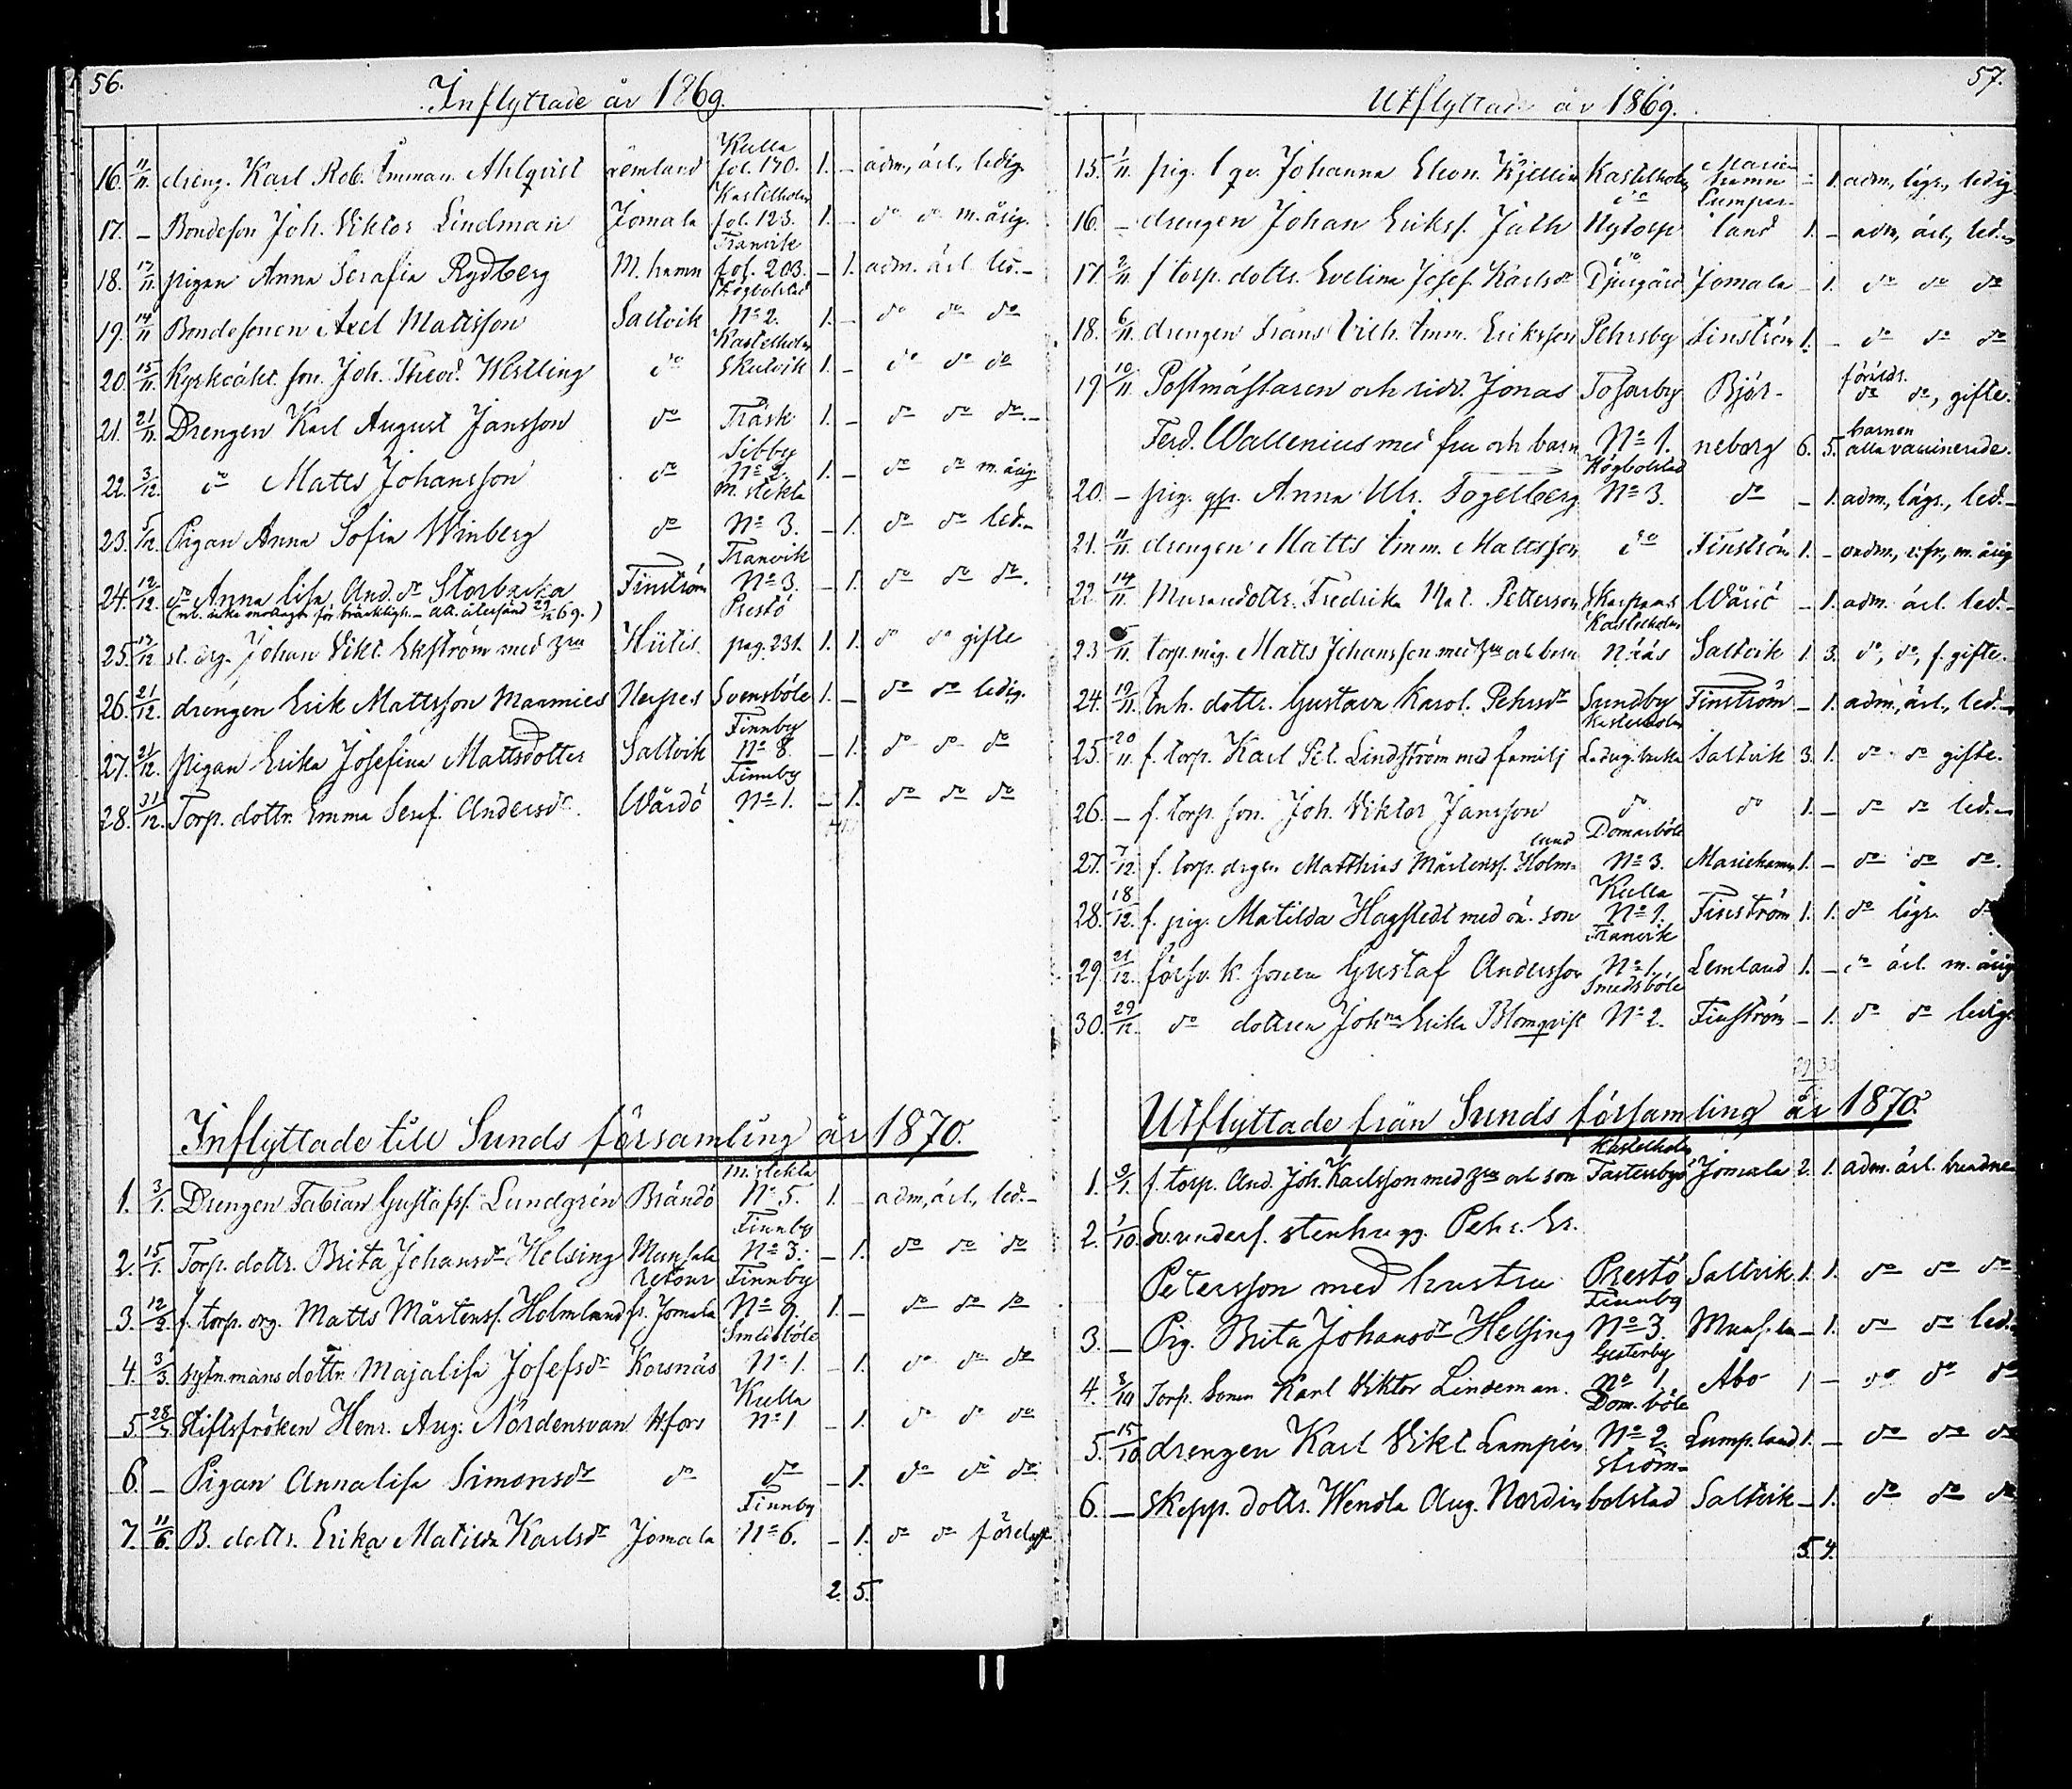 56.
Inflyttade år 1869.
16. 11/11. dreng. Karl Rob. Imman. Ahlqvist Lemland Kulla fol. 170. 1. – adm., ärl., ledig.
17. – Bondeson Joh. Viktor Lindman Jomala Kastelholm fol. 123. 1. – do do m. årig.
18. 17/11. pigan Anna Serafia Rydberg M. hamn Tranvik fol. 203. – 1. adm. ärl. led. –
19. 14/11 Bondesonen Axel Mattsson Saltvik Högbolstad No 2. 1. – do do do
20. 15/11. Kyrkvākt. son. Joh. Theod. Westling do Kastelholm Skutvik 1. – do do do
21. 21/11. Drengen Karl August Jansson do Träsk 1. – do do do. –
22. 3/12. do Matts Johansson do Sibby No 2. 1. – do do m. årig
23. 5/12. Pigan Anna Sofia Winberg do M. stekta No 3. – 1. do do led. –
24. 12/12. do Anna Lisa And. dr Storbacka Finström Tranvik No 3. – 1. do do do.
(bl. icke mottagen för bräcklighet – att. återsänd 29/12 69.)
25. 17/12 st. drg. Johan Vikt. Ekström med hru Hiitis. Prestö pag. 231. 1. 1. do do gifte
26. 21/12. drengen Erik Mattsson Marmies Nerpes Svensböle 1. – do do ledig.
27. 21/12. pigan Erika Josefina Mattsdotter Saltvik Finnby No 8. – 1. do do do
28. 31/12. Torp. dottr. Emma Seraf. Andersdr. Wårdö Finnby No 1. – 1. do do do
Inflyttade till Sunds församling år 1870.
1. 3/1. Drengen Fabian Gustafss. Lundgrén Brändö M. stekta No 5. 1. – adm., ärl., led. –
2. 15/1. Torp. dottr. Brita Johansdr Helsing Munsala Finnby No 3. – 1. do do do
3. 12/2. f. torp. drg. Matts Mårtenss. Holmlund retour fr. Jomala Finnby No 9. 1. – do do do
4. 3/3. rytn. mans dottr. Majalisa Josefsdr Korsnäs Smedsböle No 1. – 1. do do do
5. 28/5. Stiftsfröken Henr. Aug. Nordensvan H.fors Kulla No 1 – 1. do do do
6. – Pigan Annalisa Simonsdr do do – 1. do do do
7. 11/6. B. dottr. Erika Matilda Karlsdr Jomala Finnby No 6. – 1. do do
2. 5.
57.
Utflyttade år 1869.
15. 1/11. pig. Johanna Eleon. Kjellin Kastelholm Mariehamn – 1. adm., lägr., ledig
16. – drengen Johan Erikss. Jath do Nytorp Lumparland 1. – adm., ärl., led. –
17. 2/11. f. torp. dottr. Evelina Josef. Karlsdr do Djurgård Jomala – 1. do do do
18. 6/11. drengen Frans Vilh. Imm. Eriksson Pehrsby Finström 1. – do do do
19 10/11. Postmästaren och ridd. Jonas Tosarby Björ- föräldr. do do, gifte.
Ferd. Wallenius med fru och barn No 1. neborg 6. 5. barnen alla vaccinerade.
20. – pig. Anna Ulr. Fogelberg Högbolstad No 3. do – 1. adm., lägr., led. –
21. 11/11. drengen Matts Imm. Mattsson do Finström 1. – m. årig
22. 14/11. Muraredottr. Fredrika Mat. Petterson Skarpans Wårdö – 1. adm. ärl. led. –
23 15/11. torp. måg. Matts Johansson med hru och barn Kastelholm Näs Saltvik 1. 3. do, do, f. gifte.
24. 19/11. Inh. dottr. Gustava Karol. Pehrsdr Sundby Finström – 1. adm., ärl., led. –
25. 20/11. f. torp. Karl Pet. Lindström med familj Kastelholm Ladug. backa Saltvik 3. 1. do do gifte.
26. – f. torp. son. Joh. Viktor Jansson do do 1. – do do led. –
27. 7/12. f. torp. drgen Matthias Mårtenss. Holmlund Domarböle No 3. Mariehamn 1. – do do do.
28. 18/12. f. pig. Matilda Hagstedt med oä. son Kulla No 1. Finström 1. 1. do lägr. do
29. 21/12. försv. k. sonen Gustaf Andersson Tranvik No 1. Lemland 1. – do ärl. m. årig
30. 29/12. do dottren Johna Erika Blomqvist Smedsböle No 2. Finström – 1. do do ledig
Utflyttade från Sunds församling år 1870.
1. 9/1. f. torp. And. Joh. Karlsson med hru och son Kastelholm Tosterby Jomala 2. 1. adm. ärl.
2. 1/10. stenhugg. Pehr Er.
Petersson med hustru Prestö Saltvik 1. 1. do do do
3. – Pig. Brita Johansdr Helsing Finnby No 3. Munsala – 1. do do led. –
4. 8/10 Torp. Sonen Karl Viktor Lindeman. Gesterby No 1. Åbo 1 – do do do
5. 15/10 drengen Karl Vikt. Lumpén Dom. böle No 2. Lump.land 1. – do do do
6. – Skepp. dottr. Wendla Aug. Nordin Strömbolstad Saltvik – 1. do do do
5. 4.